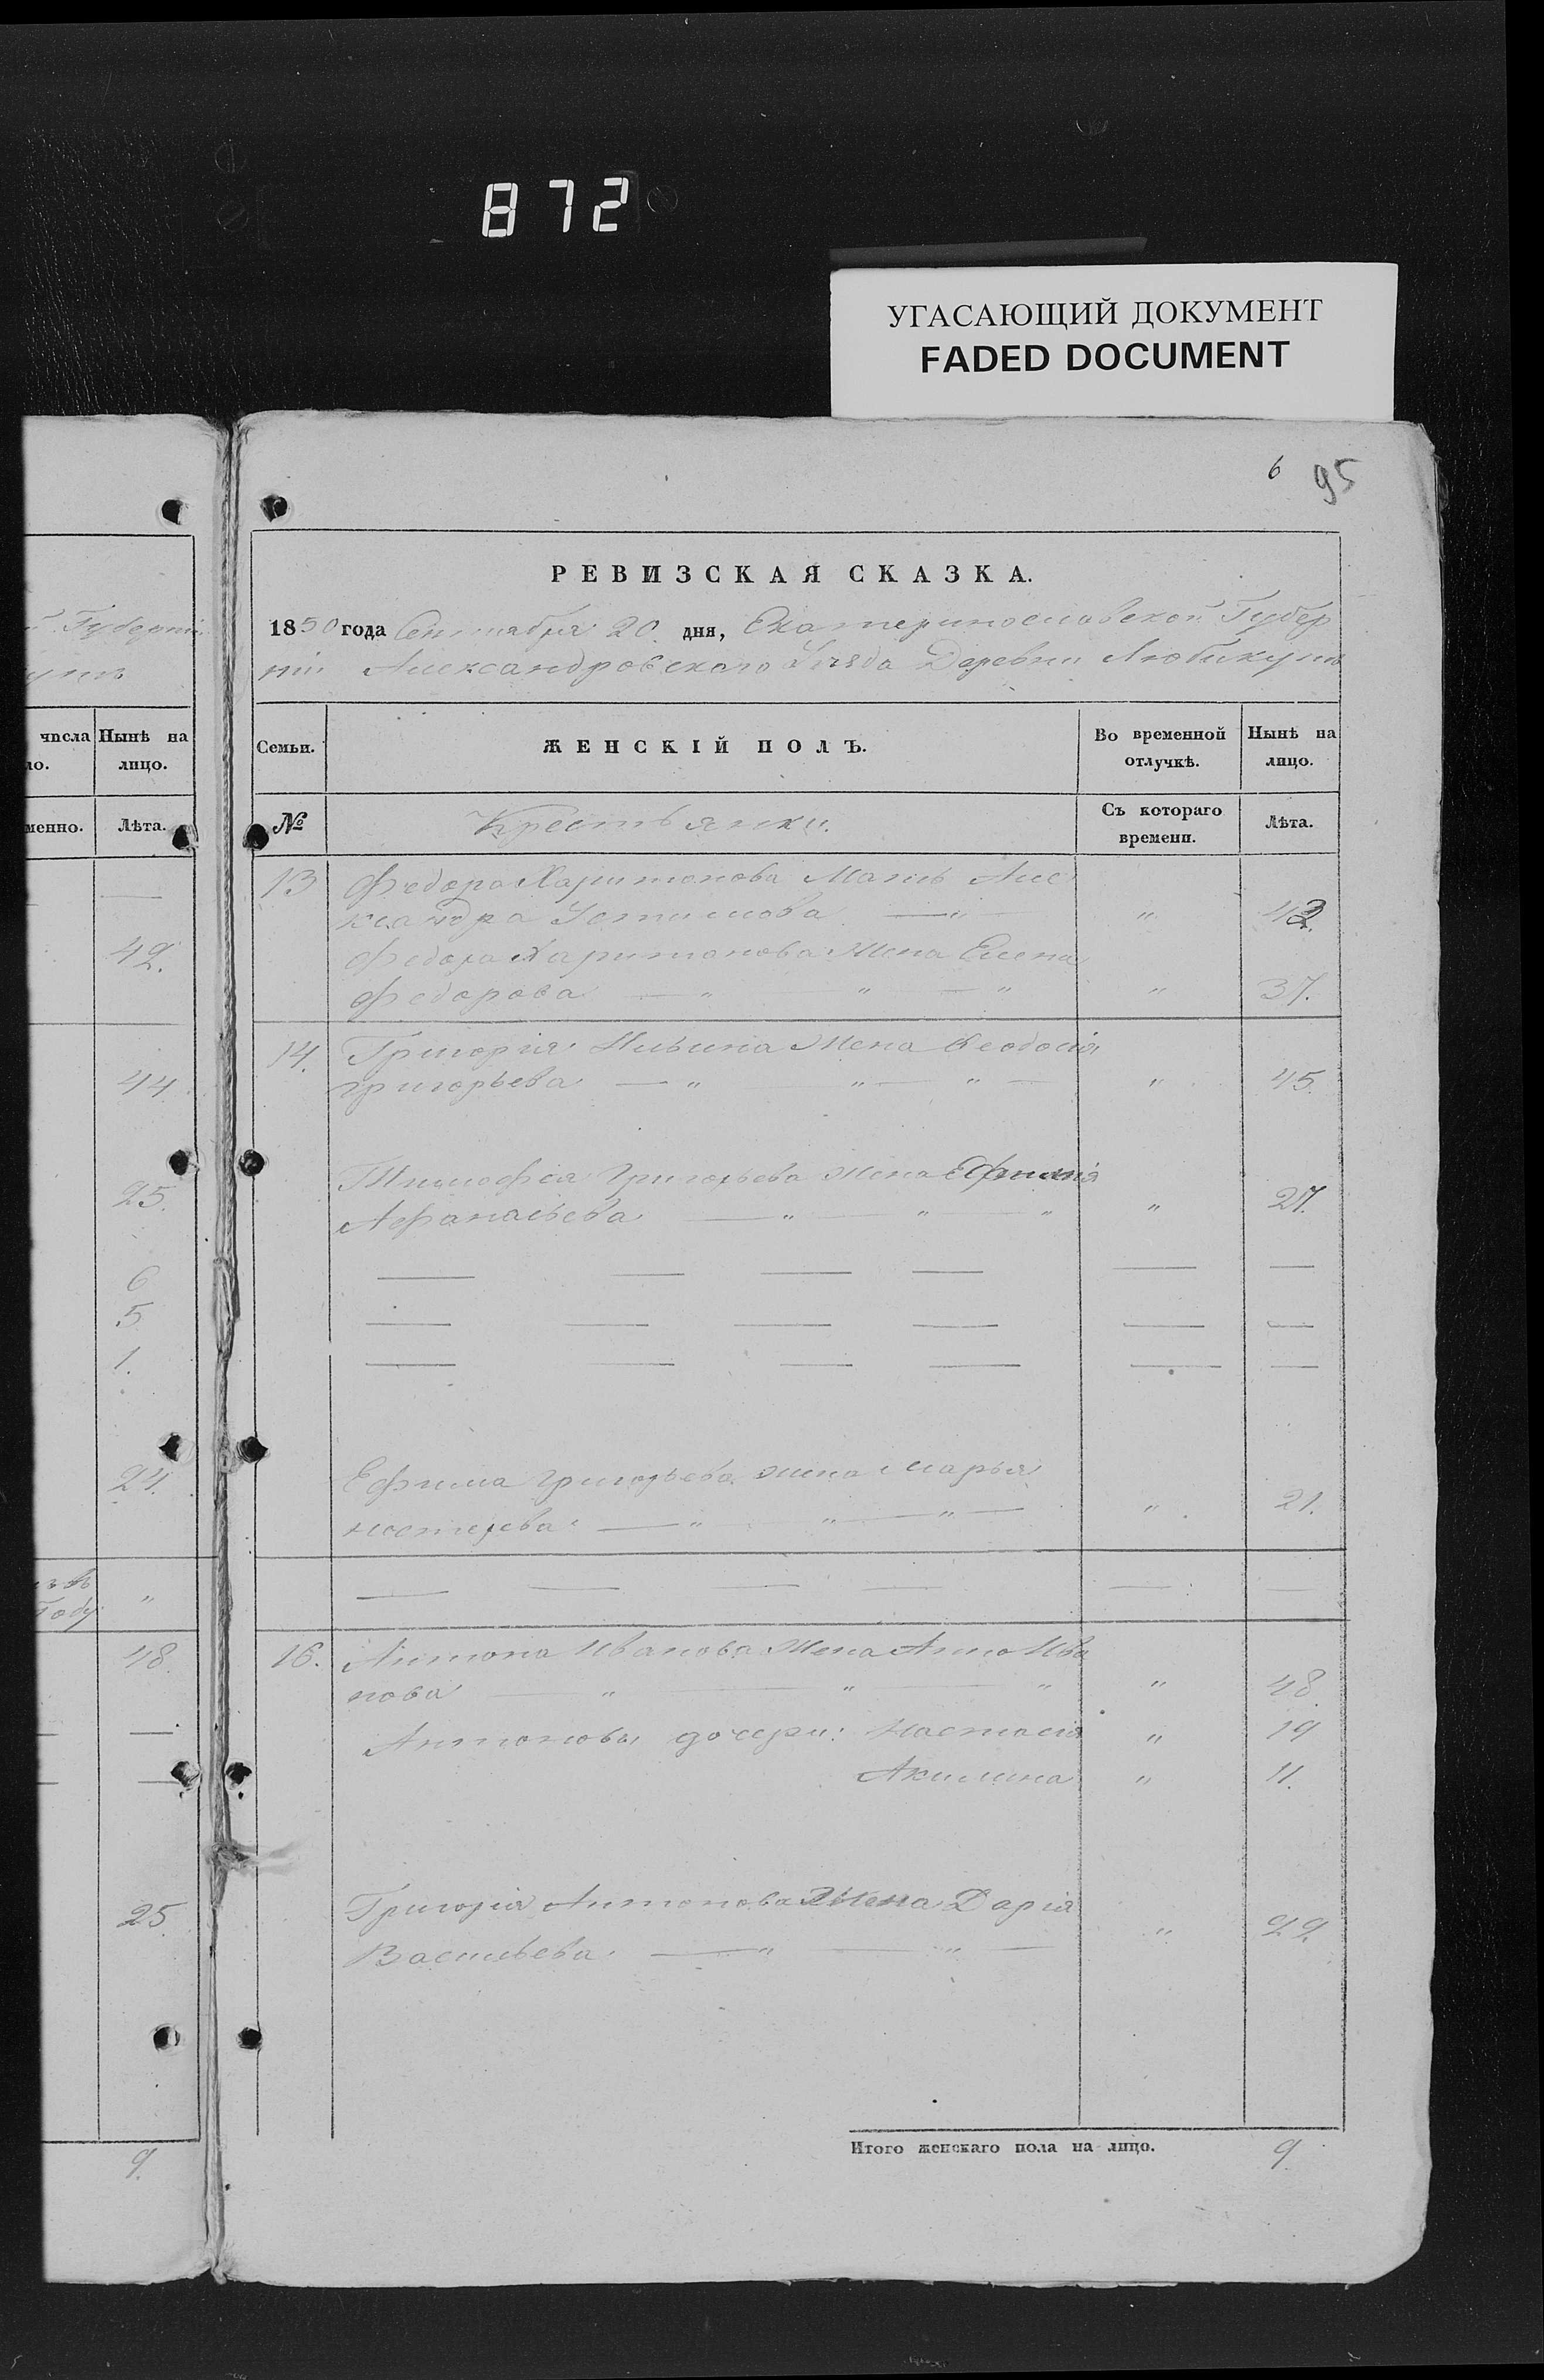 872
УГАСАЮЩИЙ ДОКУМЕНТ
FADED DOCUMENT
6 95
Губерніи
числа Нынѣ на
ло. лицо.
менно. Лѣта.
42.
44
25.
6
5
1.
24.
Году "
48.
25
9.
РЕВИЗСКАЯ СКАЗКА.
1850 года Сентября 20 дня, Екатеринославской Губер
ніи Александровскаго Уѣзда Деревни Любикутъ
Семьи. ЖЕНСКІЙ ПОЛЪ. Во временной отлучкѣ. Нынѣ на лицо.
№ Крестьянки. Съ котораго времени. Лѣта.
13 Федора Харитонова Мать Але
ксандра Устимова — " — " 42.
Федора Харитонова Жена Елена
Федорова — " — " — " " 37.
14. Григорія Ильина Жена Феодосія
Григорьева — " " — " — " 45.
Тимофея Григорьева Жена
Афанасьева — " — " — " " 27.
Ефима Григорьева жена Марья
Нестерева — " " — " — " 21.
16. Антона Иванова Жена Анна Ива
нова — " — " — " " 48.
Антоновы дочери: Настасія " 19
Акилина " 11.
Григорія Антонова Жена Дарія
Васильева — " — " — " 22.
Итого женскаго пола на лицо. 9.